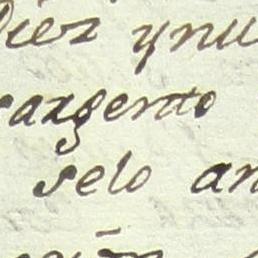 Diez ynu
sargento
selo an